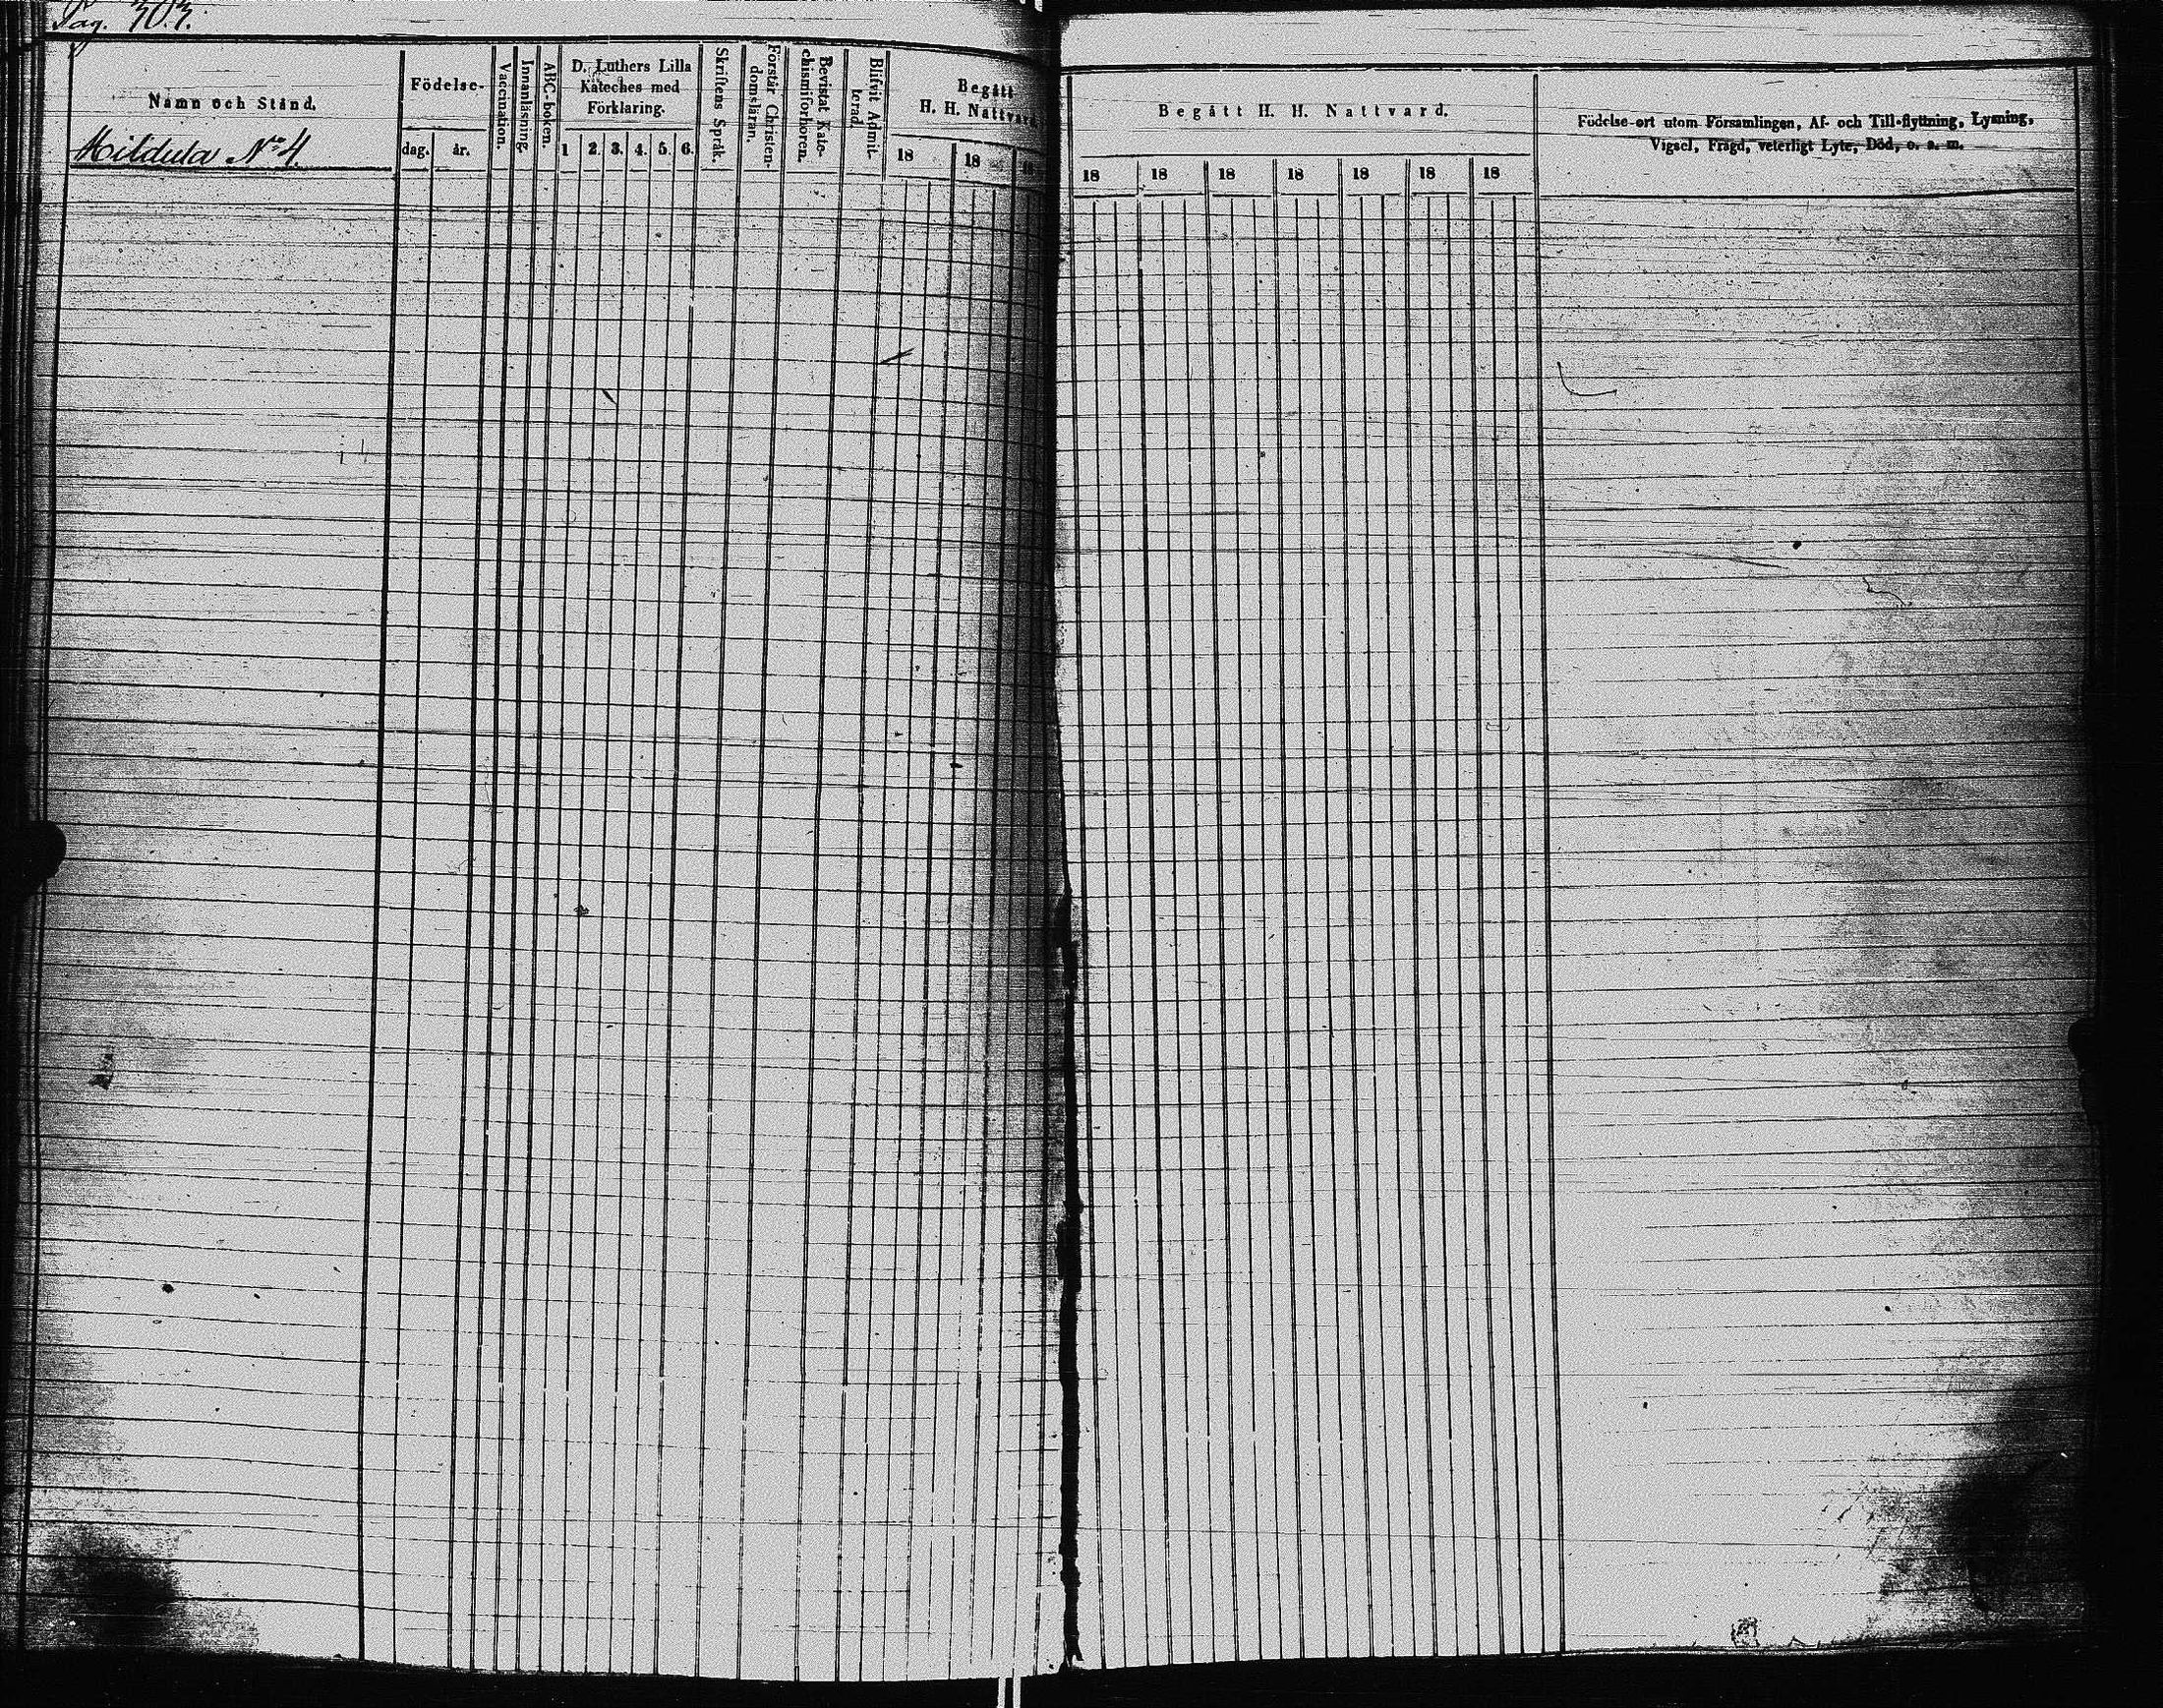 Pag. 303.
Namn och Stånd.
Hildula No 4.
Födelse-
dag. år.
Vaccination.
Innanläsning.
ABC-boken.
D. Luthers Lilla
Kateches med
Förklaring.
1 2. 3. 4. 5. 6.
Skriftens Språk.
Förstår Christen-
domsläran.
Bevistat Kate-
chismiförhören.
Blifvit Admit-
terad.
Begått
H. H. Nattvard.
18 18 18
Begått H. H. Nattvard.
18 18 18 18 18 18 18
Födelse-ort utom Församlingen, Af- och Till-flyttning, Lysning,
Vigsel, Frägd, veterligt Lyte, Död, o. s. m.